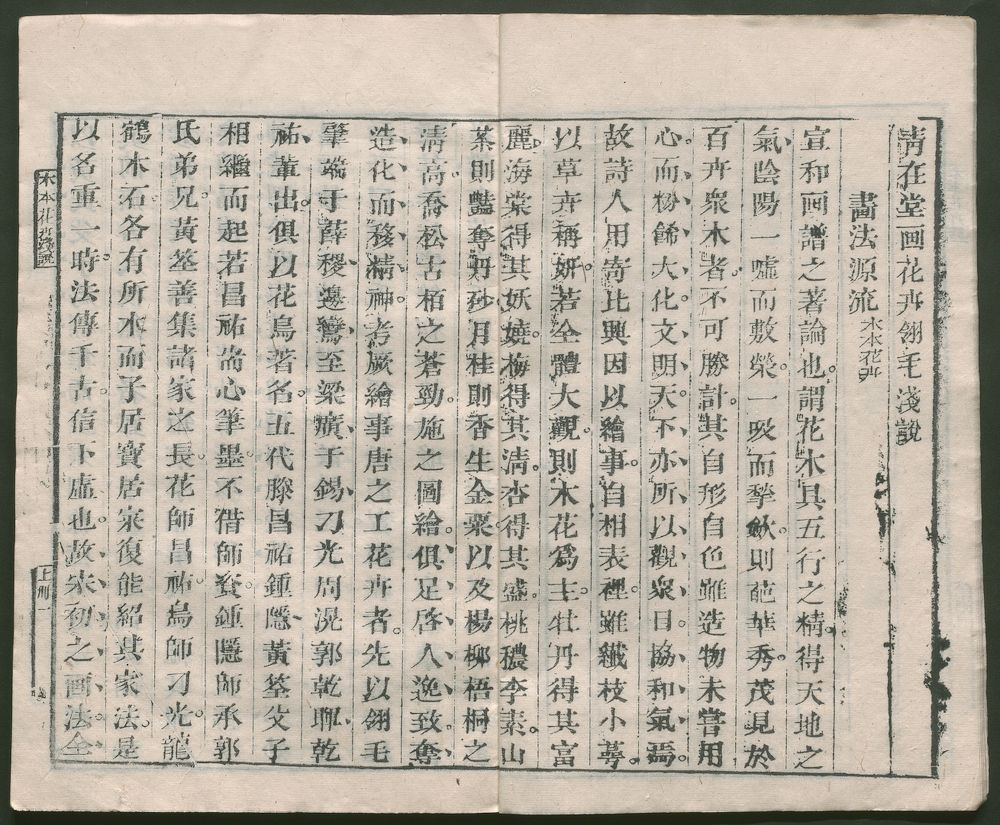 淸在堂画花卉翎毛淺說
畵法源流木本花卉
宣和画譜之著論也謂花木具五行之精得天地之
氣陰陽一噓而敷榮一吸而揫斂則葩華秀茂見於
百卉衆木者不可勝計其自形自色雖造物未嘗用
心而粉餙大化文明天下亦所以觀衆目協和氣焉
故詩人用寄比興因以繪事自相表裡雖纖枝小萼
以草卉稱姸若全體大觀則木花爲主牡丹得其富
麗海棠得其妖嬈梅得其淸杏得其盛桃穠李素山
茶則豔奪丹砂月桂則香生金粟以及楊柳梧桐之
淸高喬松古栢之蒼勁施之圖繪俱足啓人逸致奪
造化而務精神考厥繪事唐之工花卉者先以翎毛
肇端于薛稷邊鸞至梁廣于錫刁光周滉郭乾暉乾
祐輩出俱以花鳥著名五代滕昌祐鍾隱黃筌父子
相繼而起若昌祐耑心筆墨不借師資鍾隱師承郭
氏弟兄黃筌善集諸家之長花師昌祐鳥師刁光龍
鶴木石各有所本而子居寶居寀復能紹其家法是
以名重一時法傳千古信不虛也故宋初之画法全
木本花卉淺說
上册